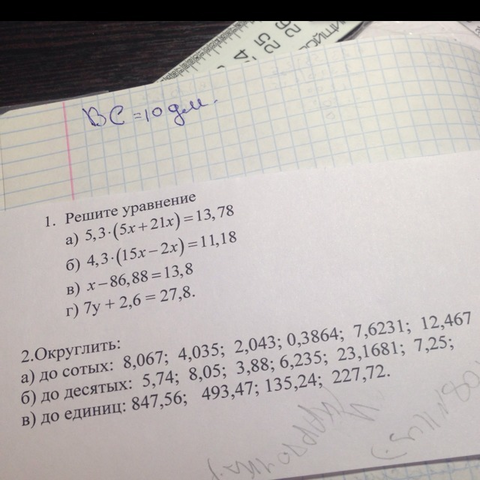 BC = 10 дм.
1. Решите уравнение
а) 5,3·(5x+21x)=13,78
б) 4,3·(15x−2x)=11,18
в) x−86,88=13,8
г) 7y + 2,6 = 27,8.
2.Округлить:
а) до сотых: 8,067; 4,035; 2,043; 0,3864; 7,6231; 12,467
б) до десятых: 5,74; 8,05; 3,88; 6,235; 23,1681; 7,25;
в) до единиц: 847,56; 493,47; 135,24; 227,72.